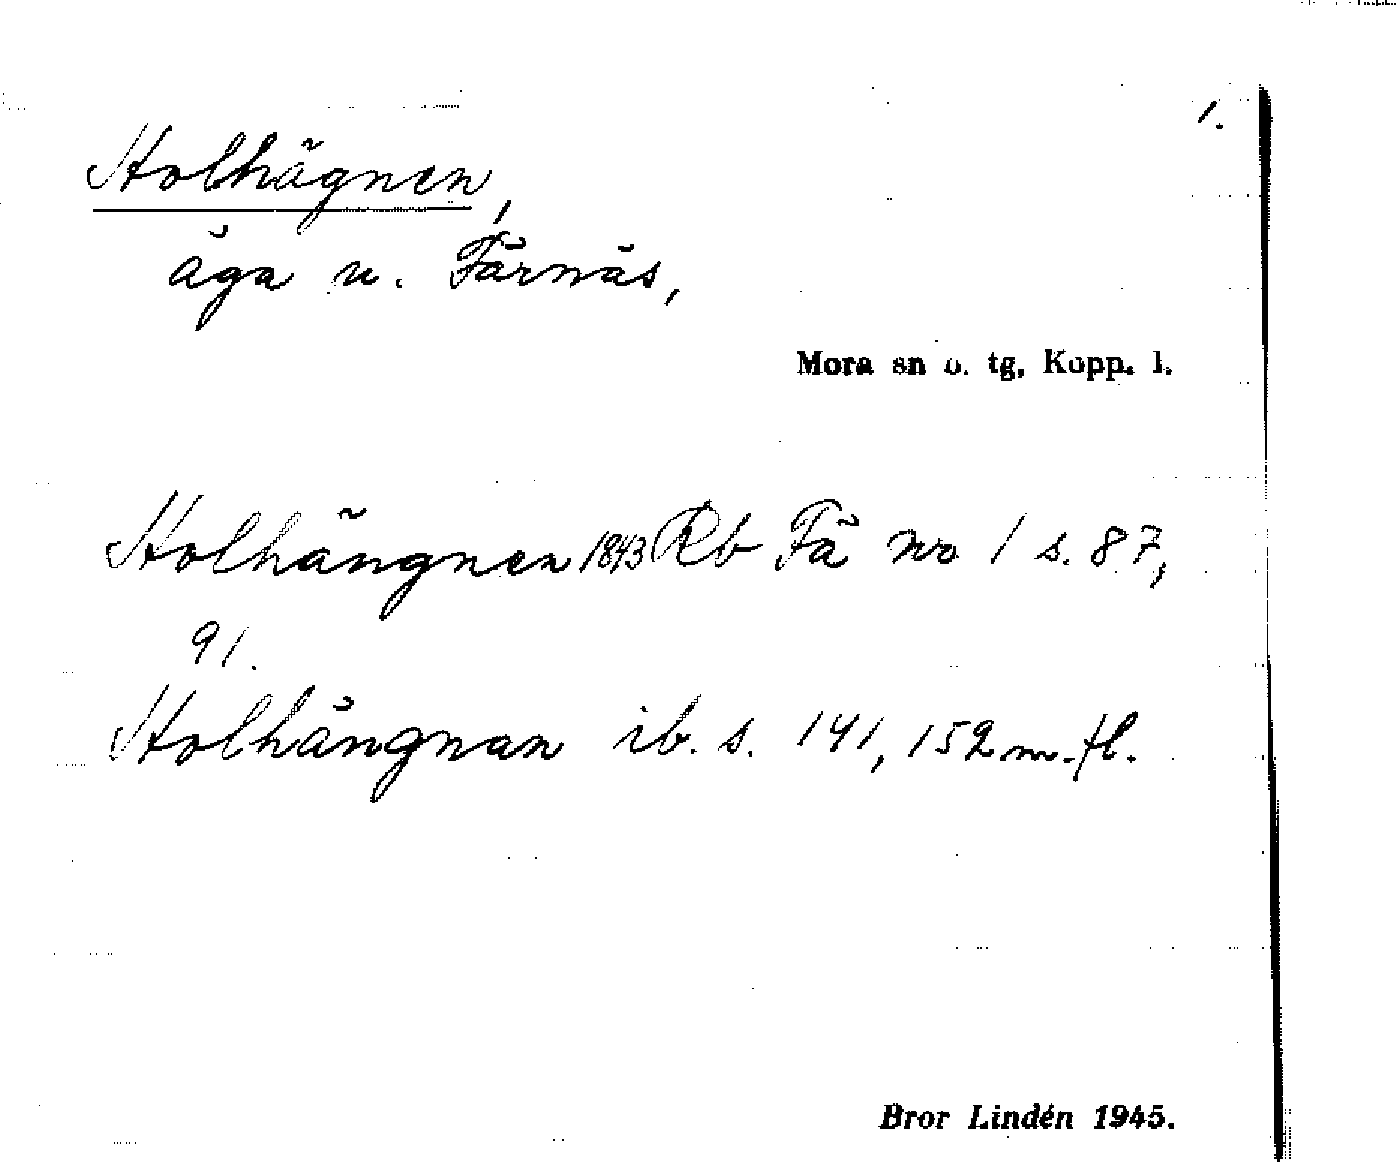 1.
Stolhägnen,
äga u. Färnäs,
Mora sn o. tg, Kopp. l.
Stolhängnen 1843 Rb Fä nro 1 s. 87,
91.
Stolhängnan ib. s. 141, 152 m. fl.
Bror Lindén 1945.